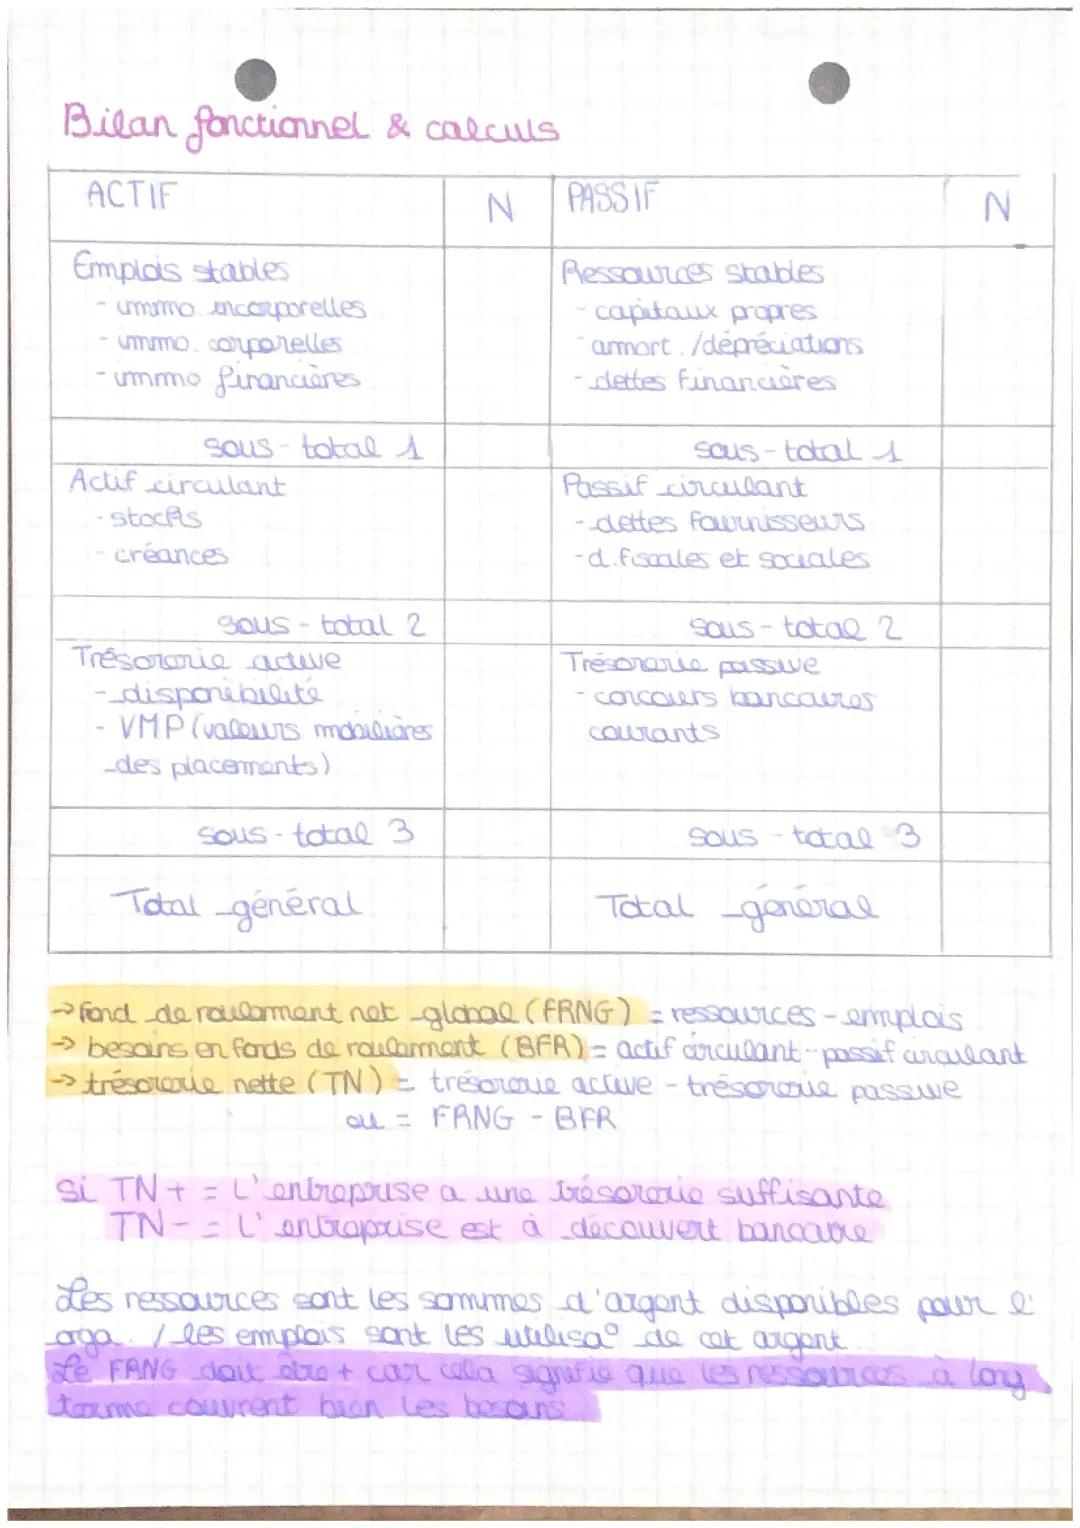 Bilan fonctionnel & calculs
ACTIF N PASSIF N
Emplois stables
- immo incorporelles
- immo. corporelles
- immo financières
Ressources stables
- capitaux propres
- ammort. /dépréciations
- dettes financières
sous-total 1 sous-total 1
Actif circulant
- stocks
- créances
Passif circulant
- dettes fournisseurs
- d. fiscales et sociales
sous-total 2 sous-total 2
Trésorerie active
- disponibilité
- VMP (valeurs mobilières
des placements)
Trésorerie passive
- concours bancaires
courants
sous-total 3 sous-total 3
Total général Total général
→ fond de roulement net global (FRNG) = ressources - emplois
→ besoins en fonds de roulement (BFR) = actif circulant - passif circulant
→ trésorerie nette (TN) = trésorerie active - trésorerie passive
ou = FRNG - BFR
si TN + = L'entreprise a une trésorerie suffisante
TN - = L'entreprise est à découvert bancaire
Les ressources sont les sommes d'argent disponibles pour l'
orga. / les emplois sont les utilisa° de cet argent.
Le FRNG doit être + car cela signifie que les ressources à long
terme couvrent bien les besoins